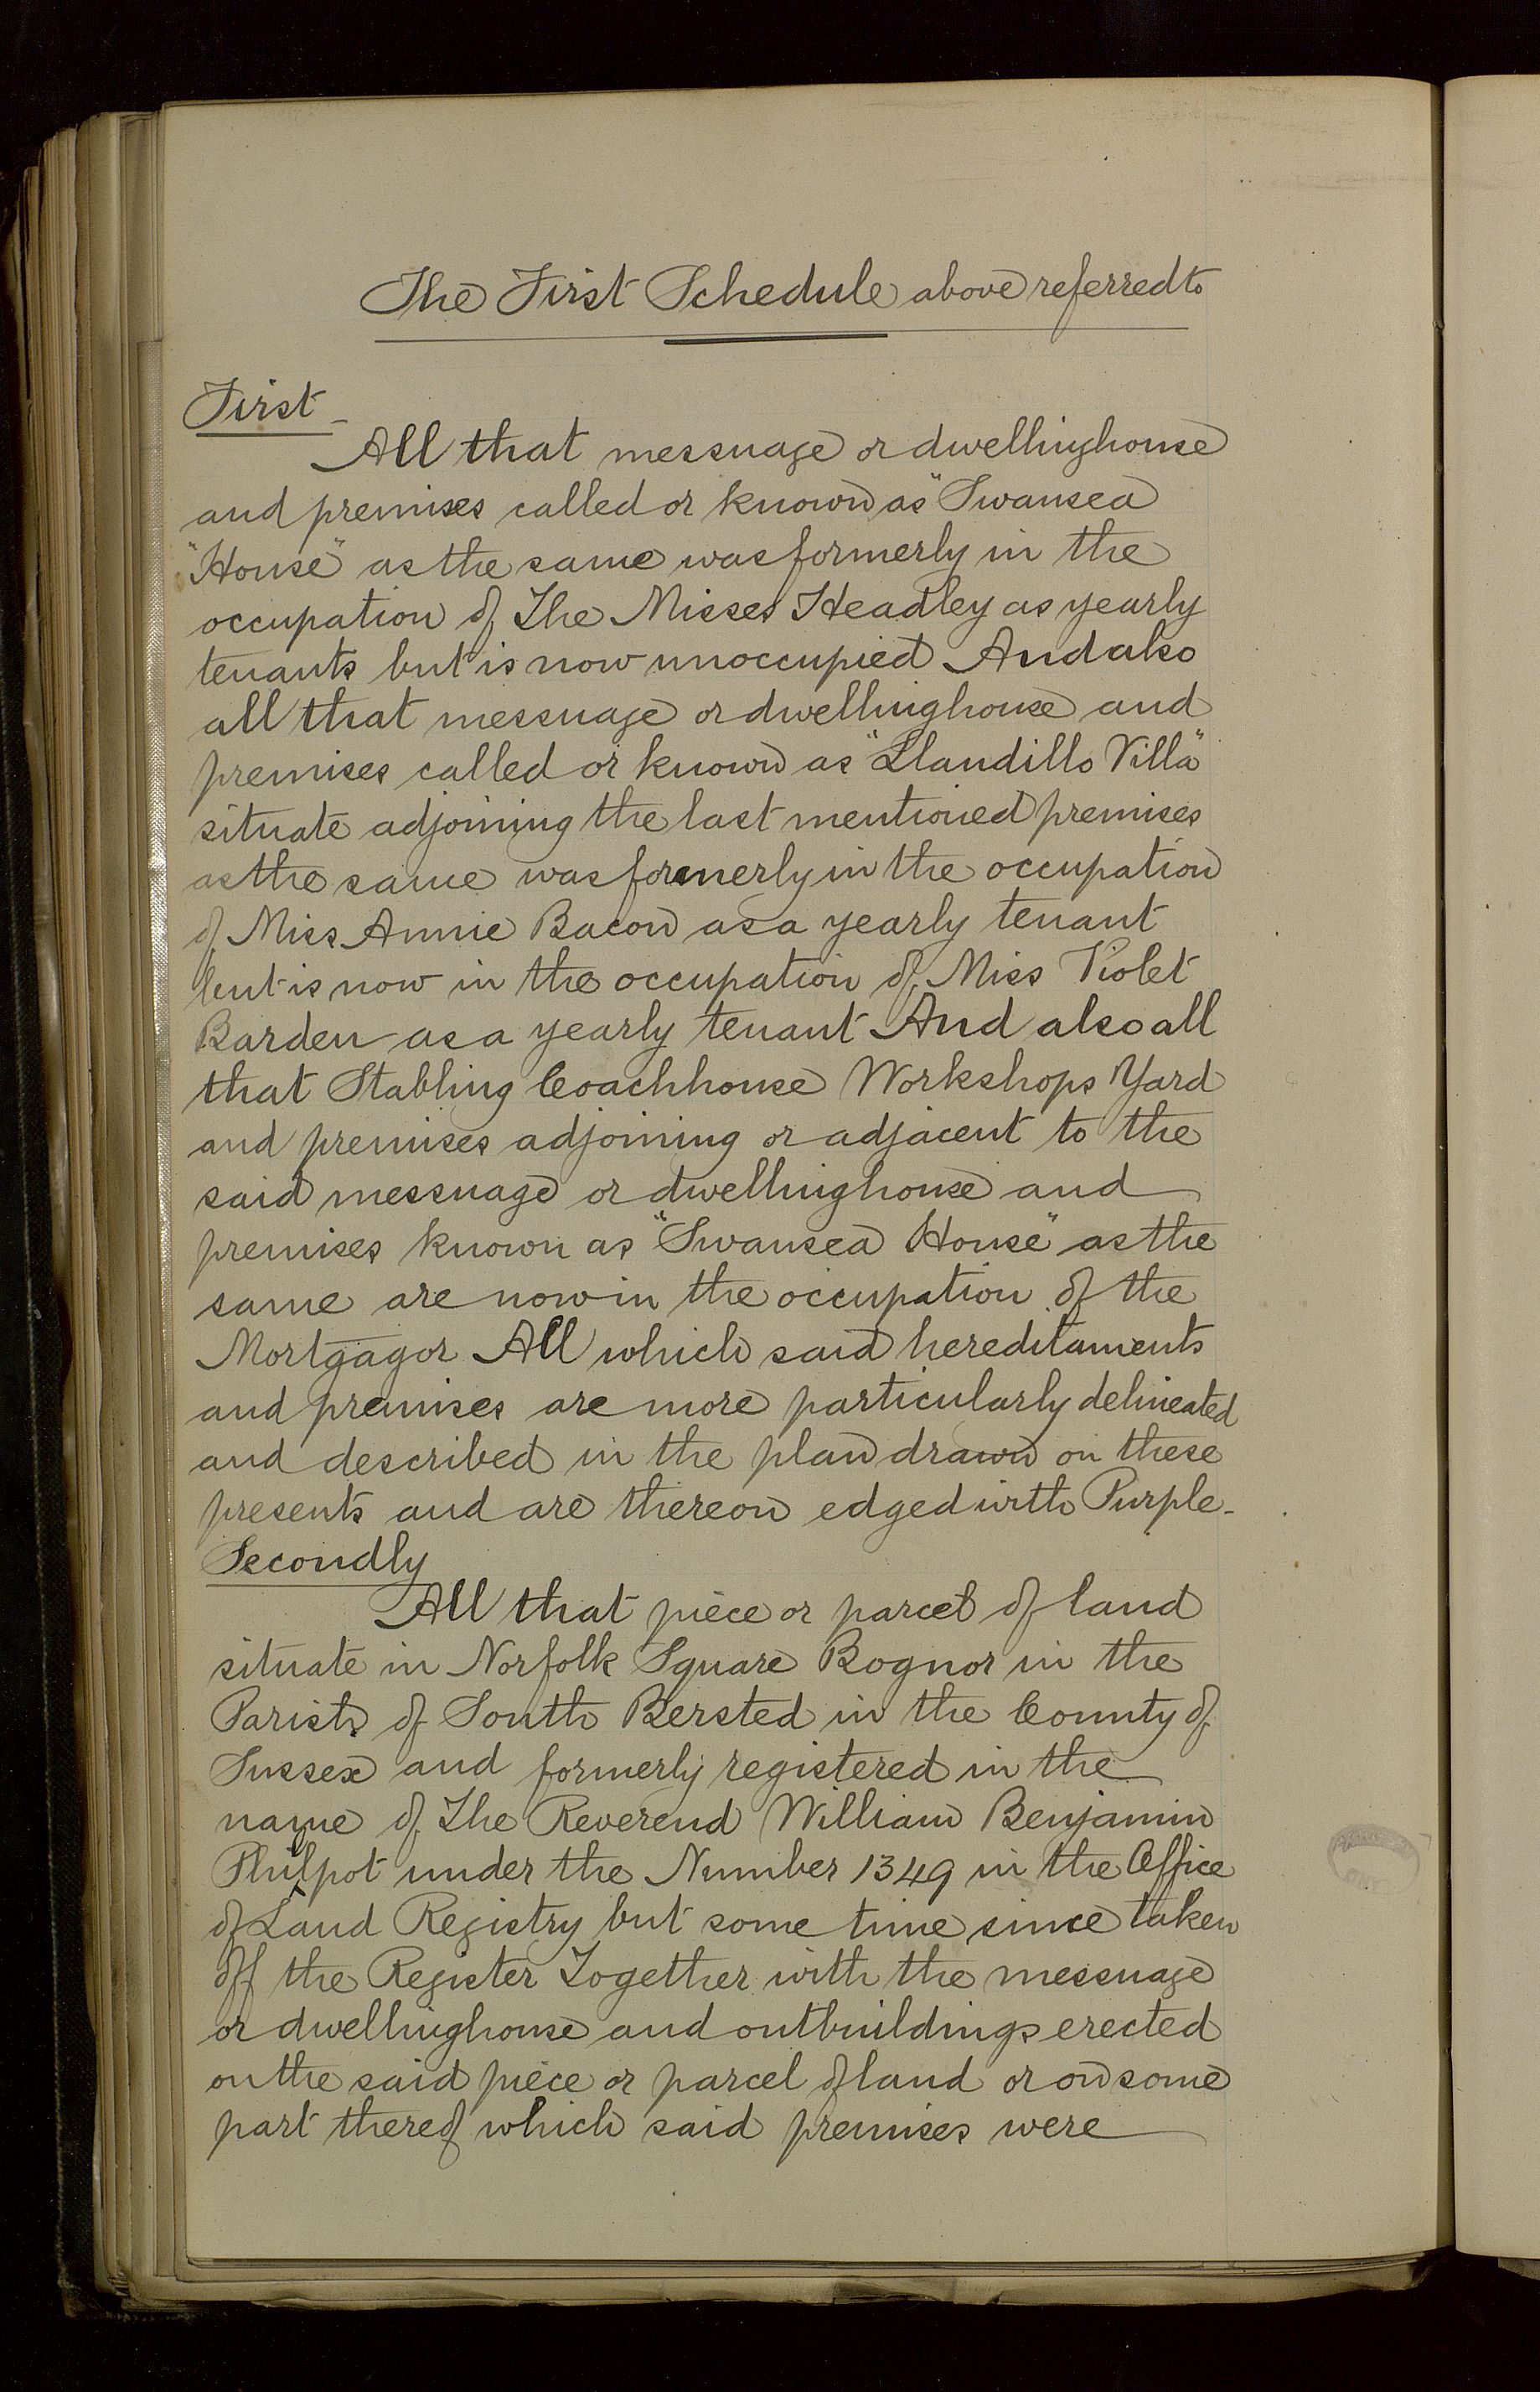 The First Schedule above referred to
First
All that messuage or dwellinghouse
and premises called or known as "Swansea
"House" as the same was formerly in the
occupation of The Misses Headley as yearly
tenants but is now unoccupied And also
all that messuage or dwellinghouse and
premises called or known as "Llandillo Villa"
situate adjoining the last mentioned premises
as the same was formerly in the occupation
of Miss Annie Bacon as a yearly tenant
but is now in the occupation of Miss Violet
Barden as a yearly tenant And also all
that Stabling Coachhouse Workshops Yard
and premises adjoining or adjacent to the
said messuage or dwellinghouse and
premises known as "Swansea House" as the
same are now in the occupation of the
Mortgagor All which said hereditaments
and premises are more particularly delineated
and described in the plan drawn on these
presents and are thereon edged with Purple -
Secondly
All that piece or parcel of land
situate in Norfolk Square Bognor in the
Parish of South Bersted in the County of
Sussex and formerly registered in the
name of The Reverend William Benjamin
Philpot under the Number 1349 in the Office
of Land Registry but some time since taken
off the Register Together with the messuage
or dwellinghouse and outbuildings erected
on the said piece or parcel of land or on some
part thereof which said premises were